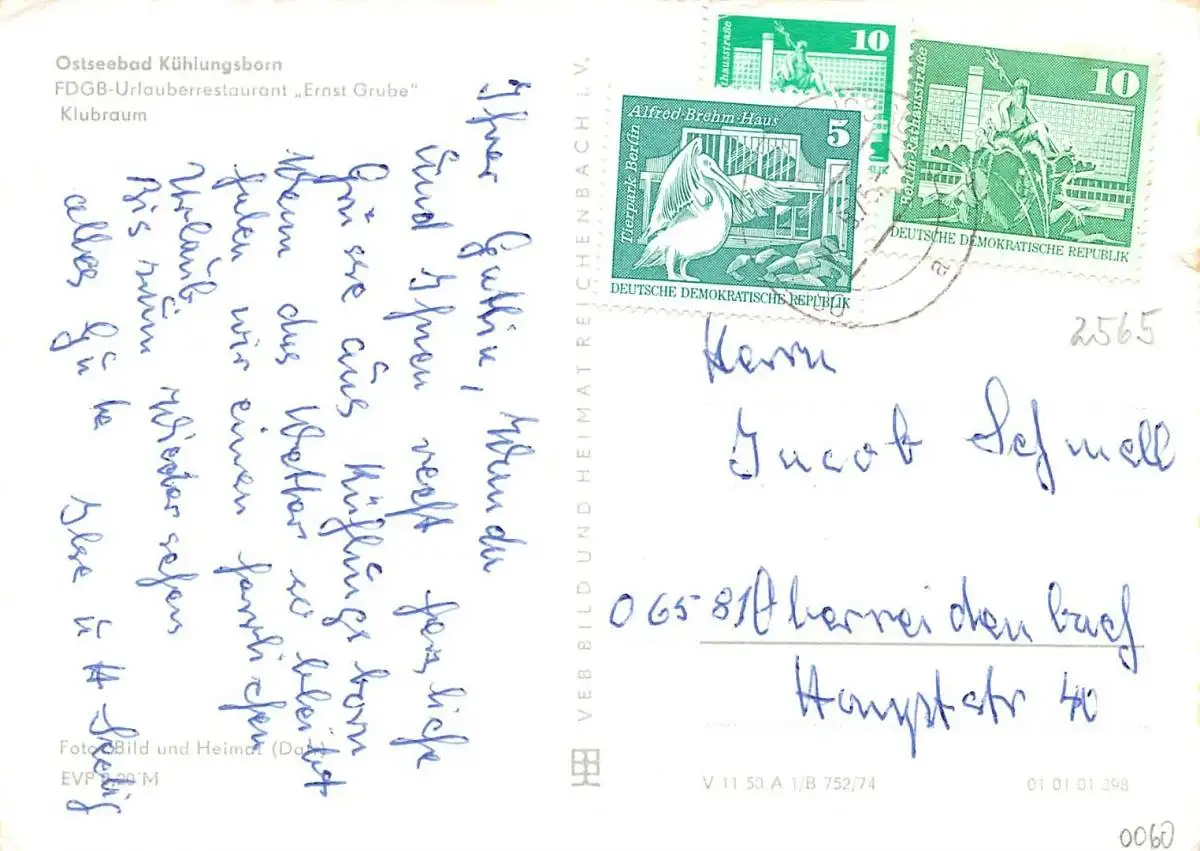 Ostseebad Kühlungsborn
FDGB-Urlauberrestaurant „Ernst Grube"
Klubraum
Wanda
und Ihnen recht herzliche
Grüsse aus Kühlungsborn
Wenn das Wetter so bleibt
haben wir einen herrlichen
Urlaub
Bis zum Wiedersehen
alles Gute Ilse u H
Foto: Bild und Heimat
EVP 0,20 M
VEB BILD UND HEIMAT REICHENBACH I. V.
10
thausstraße
Alfred-Brehm-Haus
5
Tierpark Berlin
DEUTSCHE DEMOKRATISCHE REPUBLIK
10
Berlin-Rathausstraße
DEUTSCHE DEMOKRATISCHE REPUBLIK
a
2565
Herrn
Jacob Schnell
06581 Oberreidenbach
Hauptstr 40
V 11 50 A 1/B 752/74
01 01 01 398
0060